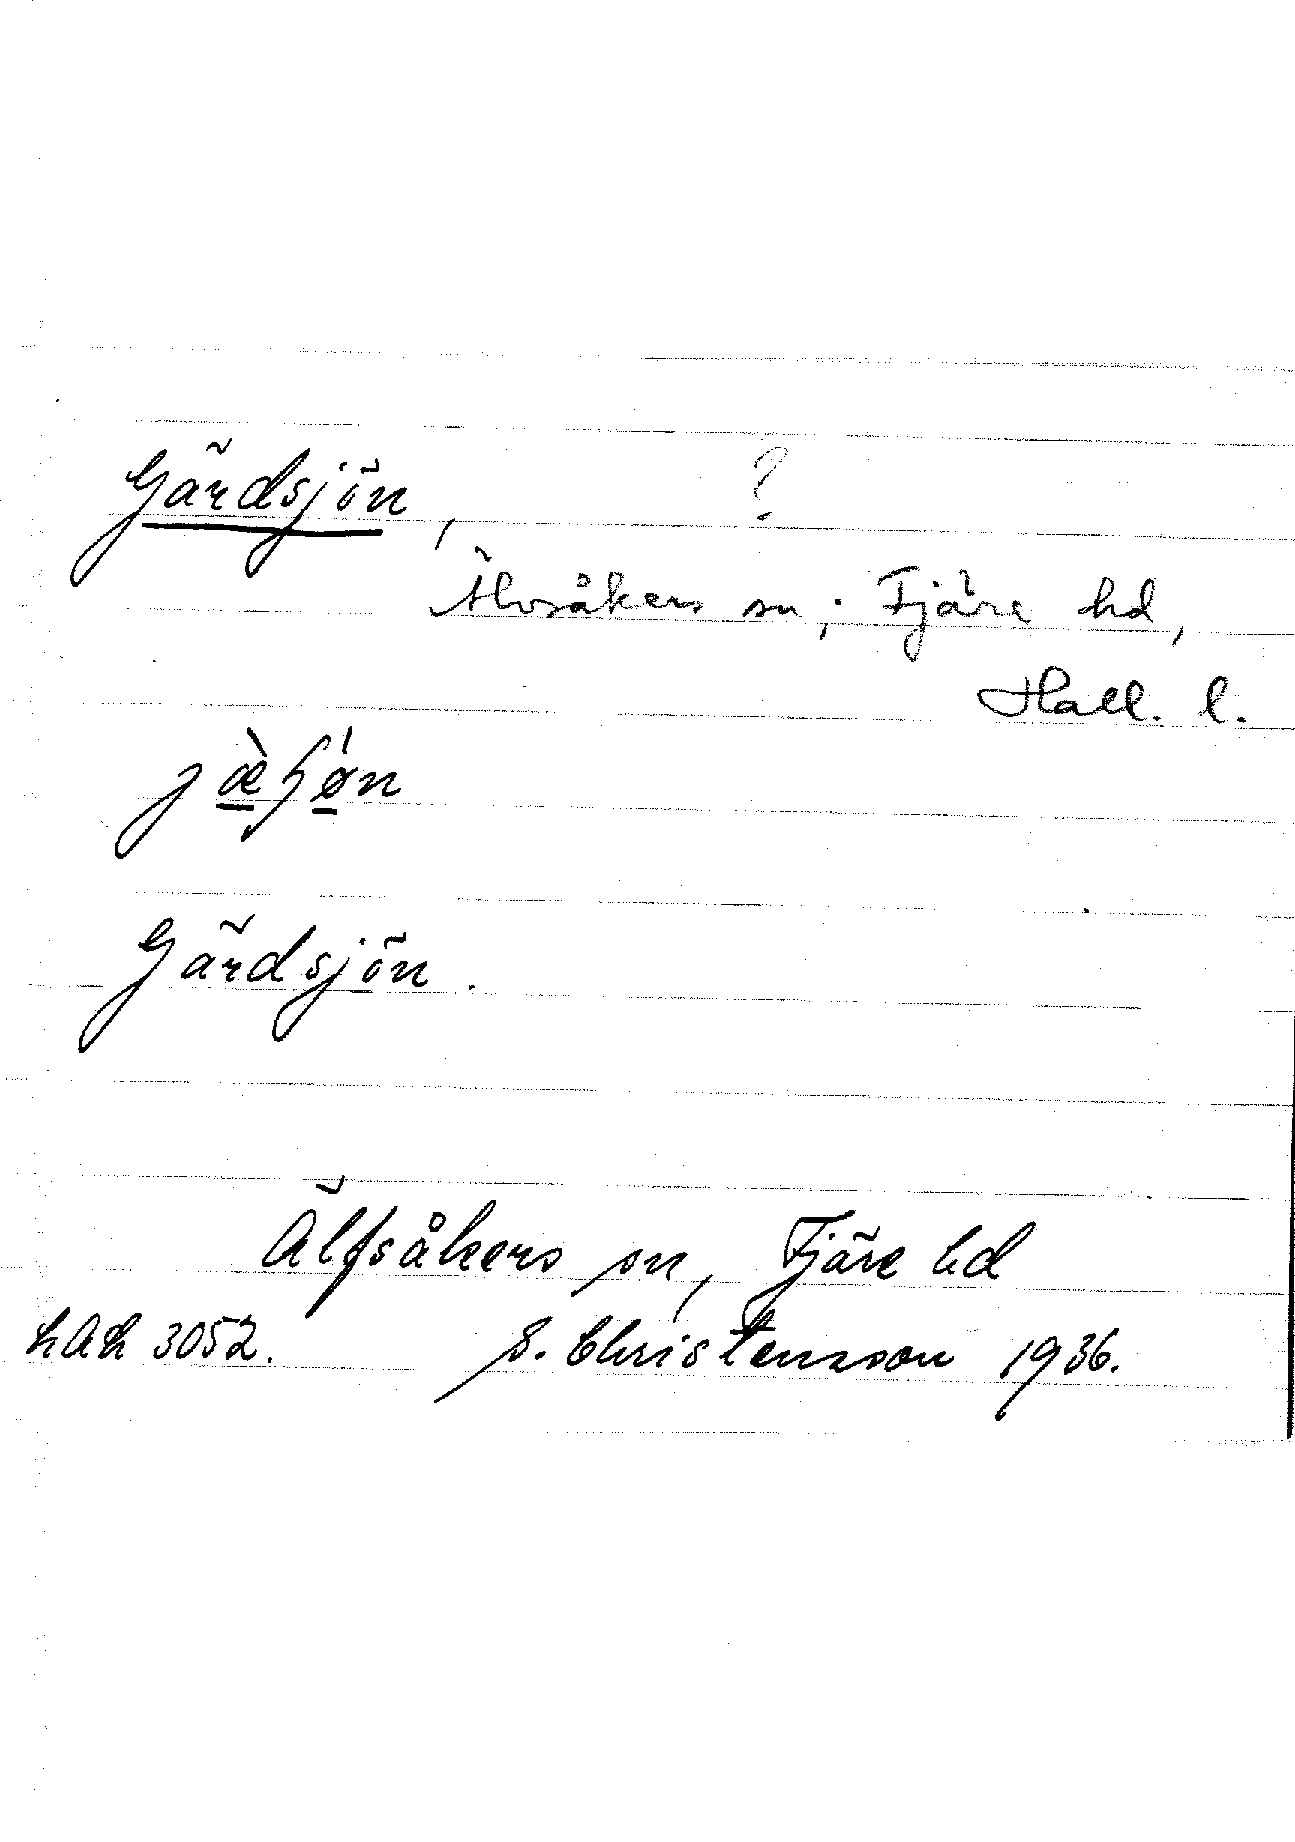 Gärdsjön, ?
Älvsåkers sn, Fjäre hd,
Hall. l.
Gärdsjön.
Älfsåkers sn, Fjäre hd
LAL 3052. S. Christensson 1936.